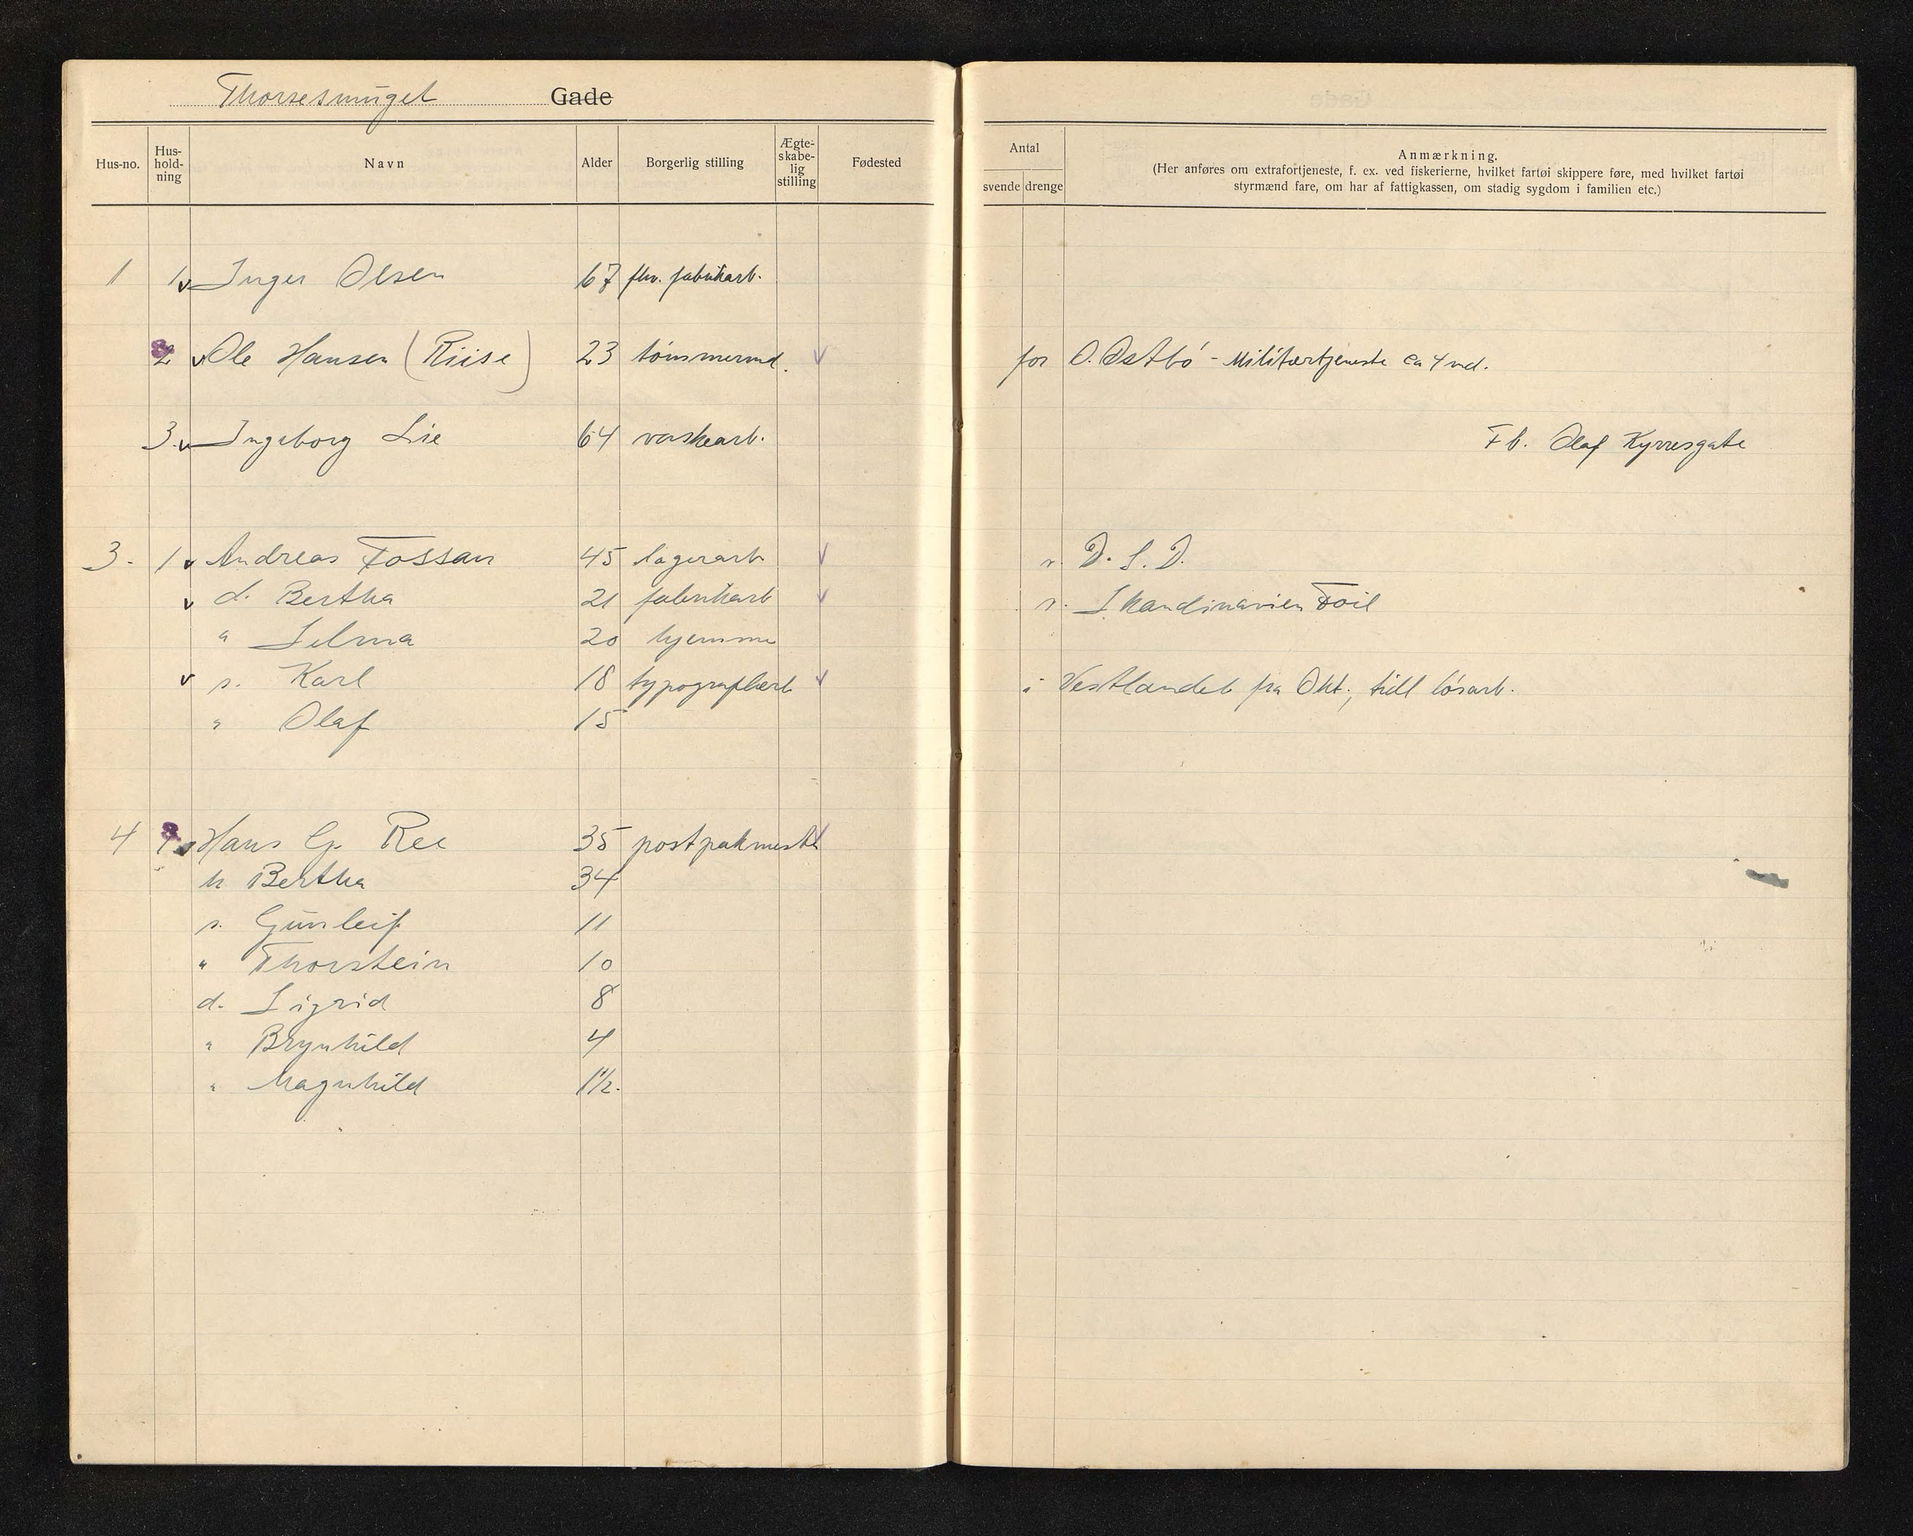 Thorsesmuget Gade
Hus-no. Hus-hold-ning Navn Alder Borgerlig stilling Ægte-skabe-lig stilling Fødested
Antal svende drenge
Anmærkning.
(Her anføres om extrafortjeneste, f. ex. ved fiskerierne, hvilket fartøi skippere føre, med hvilket fartøi
styrmænd fare, om har af fattigkassen, om stadig sygdom i familien etc.)
1 1 v Inger Olsen 67 fhv. fabrikarb.
2 v Ole Hansen (Riise) 23 tömmermd. v for O. Östbö - Militærtjeneste ca 4 md.
3. v Ingeborg Lie 64 vaskearb. Fb. Olaf Kyrresgate
3. 1 v Andreas Fossan 45 lagerarb v v. D. S. D.
v d. Bertha 21 fabrikarb v v. Skandinavien Foil
" Selma 20 hjemme
v s. Karl 18 typograflært v i Vestlandet fra Okt., tidl lösarb.
" Olaf 15
4 v Hans G. Ree 35 postpakmester v
h Bertha 34
s. Gunleif 11
" Thorstein 10
d. Sigrid 8
" Brynhild 4
" Magnhild 1 1/2.